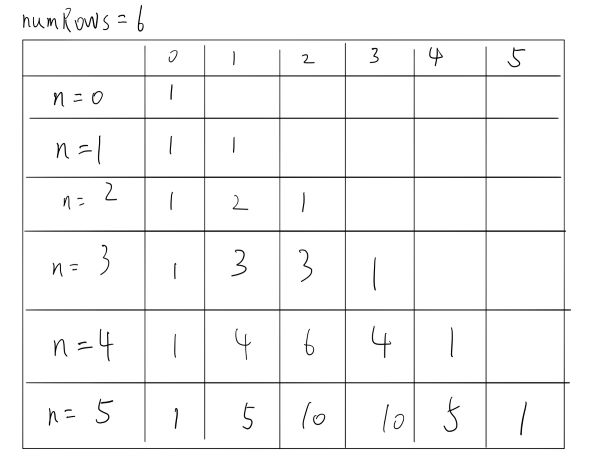 numRows = 6
0 1 2 3 4 5
n = 0 1
n = 1 1 1
n = 2 1 2 1
n = 3 1 3 3 1
n = 4 1 4 6 4 1
n = 5 1 5 10 10 5 1